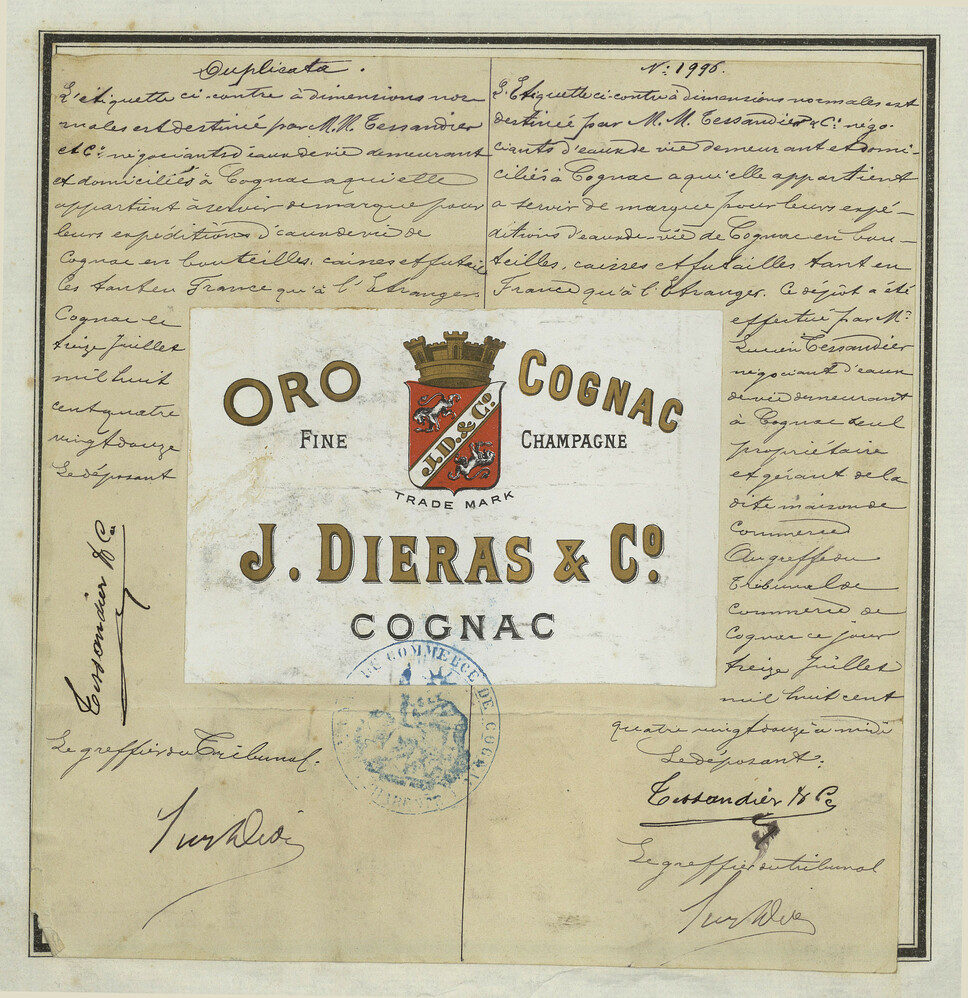 Duplicata.
L'étiquette ci-contre à dimensions nor-
males est destinée par M.M. Tessandier
et Cie négociants d'eaux de vie demeurant
et domiciliés à Cognac à qui elle
appartient à servir de marque pour
leurs expéditions d'eaux de vie de
Cognac en bouteilles, caisses et futail
les tant en France qu'à l'Etranger
Cognac le
treize Juillet
mil huit
cent quatre
vingt douze
Le déposant
Tessandier & Co
Le greffier du Tribunal.
No: 1996.
L'Etiquette ci-contre à dimensions normales est
destinée par M.M. Tessandier & Cie négo-
ciants d'eaux de vie demeurant et domi-
ciliés à Cognac à qui elle appartient
à servir de marque pour leurs expé-
ditions d'eaux-de-vie de Cognac en bou-
teilles, caisses et futailles tant en
France qu'à l'Etranger. Ce dépôt a été
effectué par Mr
Lucien Tessandier
négociant d'eaux
de vie demeurant
à Cognac seul
propriétaire
et gérant de la
dite maison de
Commerce
Au greffe du
Tribunal de
Commerce de
Cognac ce jour
treize Juillet
mil huit cent
quatre vingt douze à midi
Le déposant:
Tessandier & Co
Le greffier du tribunal
ORO COGNAC
FINE CHAMPAGNE
J.D. & Co
TRADE MARK
J. DIERAS & Co.
COGNAC
DE COMMERCE DE COGNAC